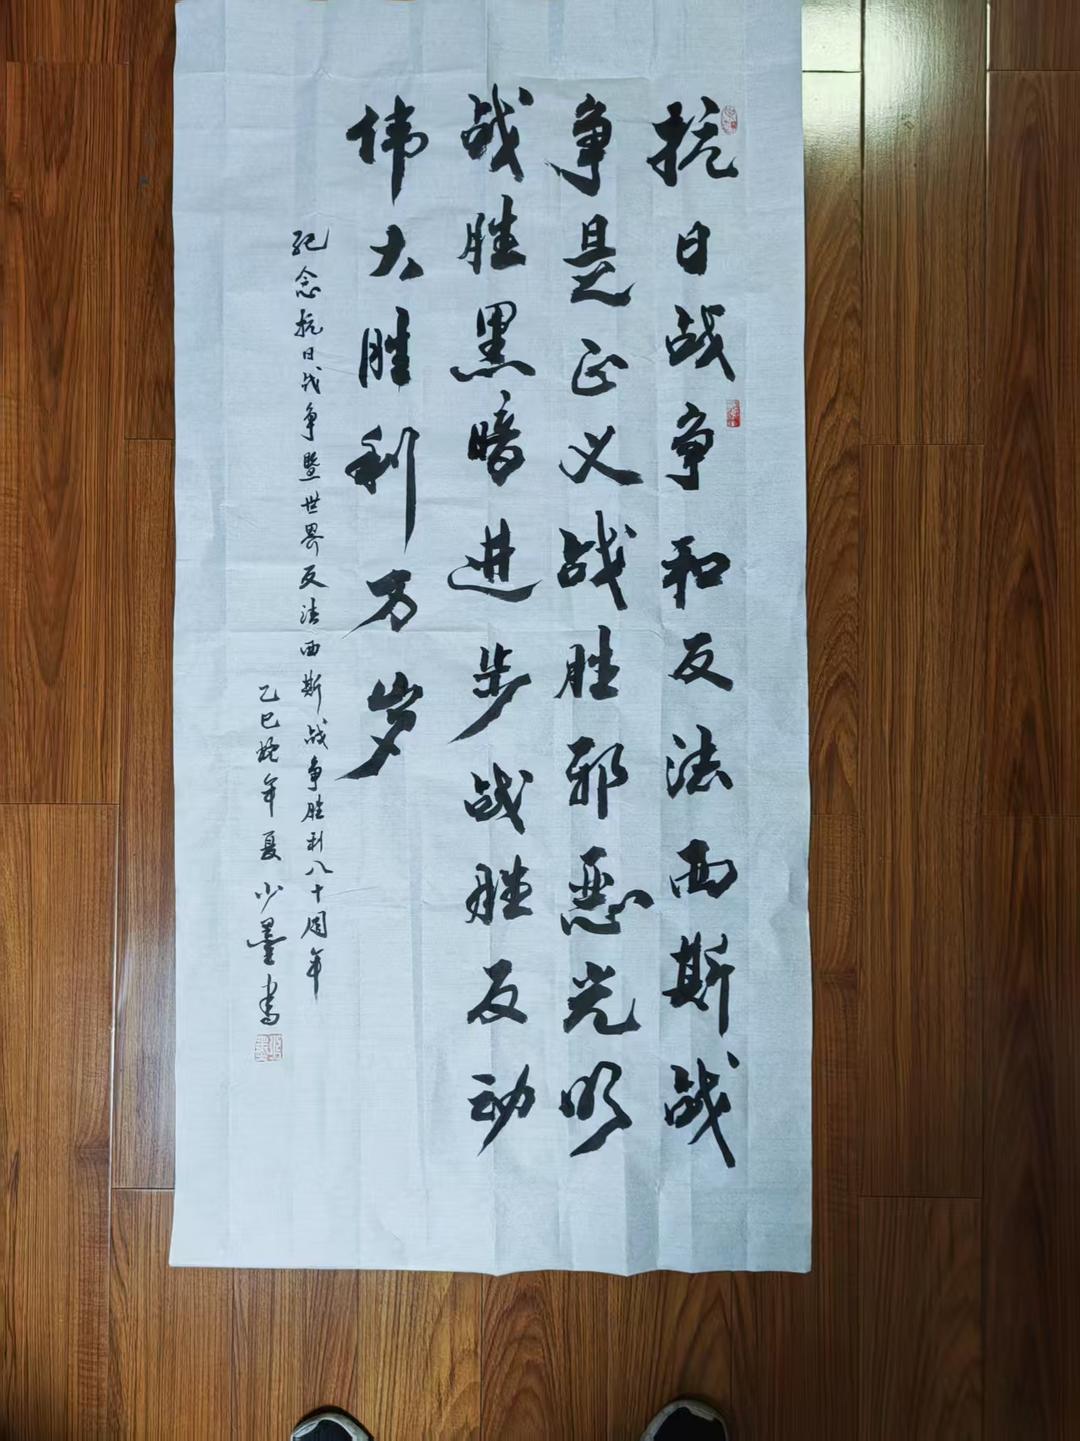 抗日战争和反法西斯战
争是正义战胜邪恶光明
战胜黑暗进步战胜反动
伟大胜利万岁
纪念抗日战争暨世界反法西斯战争胜利八十周年
乙巳蛇年夏少墨书